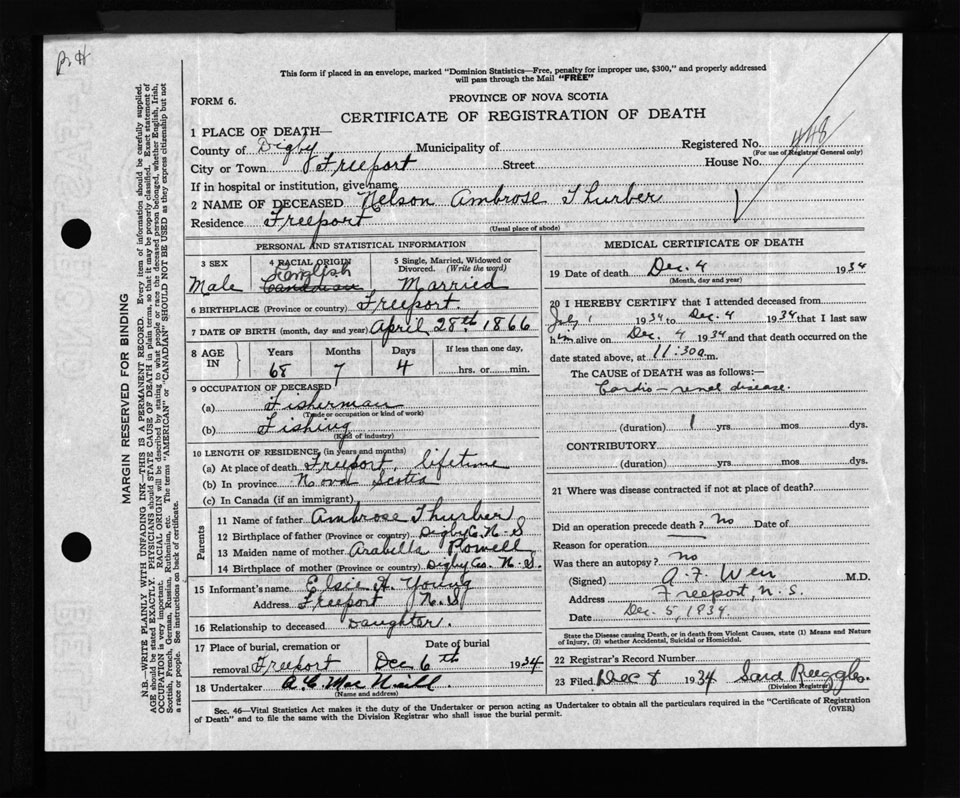 B. H
This form if placed in an envelope, marked "Dominion Statistics—Free, penalty for improper use, $300," and properly addressed
will pass through the Mail "FREE"
FORM 6.
PROVINCE OF NOVA SCOTIA
CERTIFICATE OF REGISTRATION OF DEATH
1 PLACE OF DEATH—
County of Digby Municipality of Registered No. 448
(For use of Registrar General only)
City or Town Freeport Street House No.
If in hospital or institution, give name
2 NAME OF DECEASED Nelson Ambrose Thurber
Residence Freeport
(Usual place of abode)
PERSONAL AND STATISTICAL INFORMATION
3 SEX 4 RACIAL ORIGIN 5 Single, Married, Widowed or
Divorced. (Write the word)
English
Male Canadian Married
6 BIRTHPLACE (Province or country) Freeport.
7 DATE OF BIRTH (month, day and year) April 28th 1866
8 AGE IN Years Months Days If less than one day,
68 7 4 hrs. or min.
9 OCCUPATION OF DECEASED
(a) Fisherman
(Trade or occupation or kind of work)
(b) Fishing
(Kind of industry)
10 LENGTH OF RESIDENCE (in years and months)
(a) At place of death Freeport, lifetime
(b) In province Nova Scotia
(c) In Canada (if an immigrant)
Parents
11 Name of father Ambrose Thurber
12 Birthplace of father (Province or country) Digby Co. N. S
13 Maiden name of mother Arabella Powell
14 Birthplace of mother (Province or country) Digby Co. N. S.
15 Informant's name Elsie H. Young
Address Freeport N. S
16 Relationship to deceased Daughter.
17 Place of burial, cremation or Date of burial
removal Freeport Dec 6th 1934
18 Undertaker A. C Mac Neill.
(Name and address)
MEDICAL CERTIFICATE OF DEATH
19 Date of death Dec. 4 1934
(Month, day and year)
20 I HEREBY CERTIFY that I attended deceased from
July 1 1934 to Dec. 4 1934 that I last saw
him alive on Dec. 4 1934 and that death occurred on the
date stated above, at 11:30 a.m.
The CAUSE OF DEATH was as follows:—
Cardio-renal disease.
(duration) 1 yrs. mos. dys.
CONTRIBUTORY
(duration) yrs. mos. dys.
21 Where was disease contracted if not at place of death?
Did an operation precede death? no Date of
Reason for operation
Was there an autopsy? no
(Signed) A. F. Weir M.D.
Address Freeport, N. S.
Date Dec. 5, 1934.
State the Disease causing Death, or in death from Violent Causes, state (1) Means and Nature
of Injury, (2) whether Accidental, Suicidal or Homicidal.
22 Registrar's Record Number
23 Filed Dec 8 1934 Sara Ruggles
(Division Registrar)
Sec. 46—Vital Statistics Act makes it the duty of the Undertaker or person acting as Undertaker to obtain all the particulars required in the "Certificate of Registration
of Death" and to file the same with the Division Registrar who shall issue the burial permit.
(OVER)
MARGIN RESERVED FOR BINDING
N.B.—WRITE PLAINLY WITH UNFADING INK—THIS IS A PERMANENT RECORD. Every item of information should be carefully supplied.
AGE should be stated EXACTLY. PHYSICIANS should STATE CAUSE OF DEATH in plain terms, so that it may be properly classified. Exact statement of
OCCUPATION is very important. RACIAL ORIGIN will be described by stating to what people or race the deceased person belonged, whether English, Irish,
Scottish, French, German, Russian, Ruthenian, etc. The terms "AMERICAN" or "CANADIAN" SHOULD NOT BE USED as they express citizenship but not
a race or people. See instructions on back of certificate.